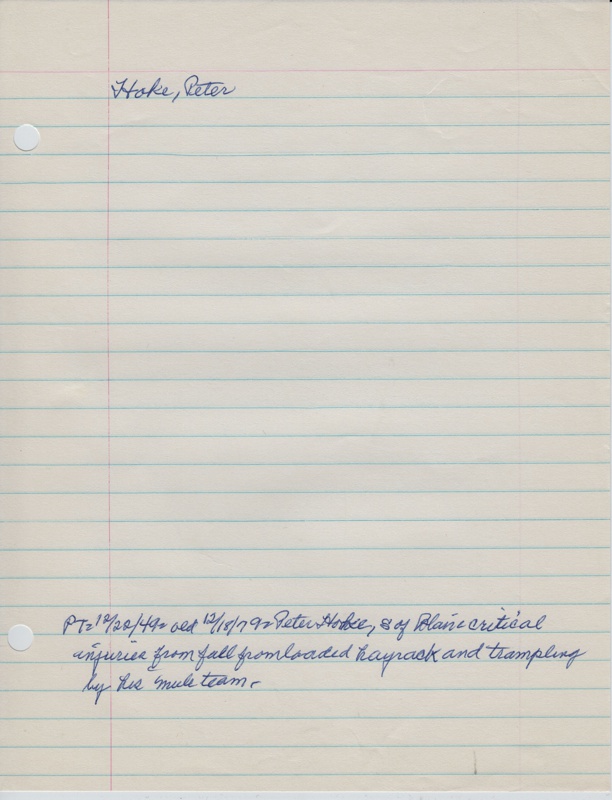 Hoke, Peter
PT= 12/22/49= wed 12/18/79= Peter Hokie, s of Blaine critical
injuries from fall from loaded hayrack and trampling
by his mule team.-